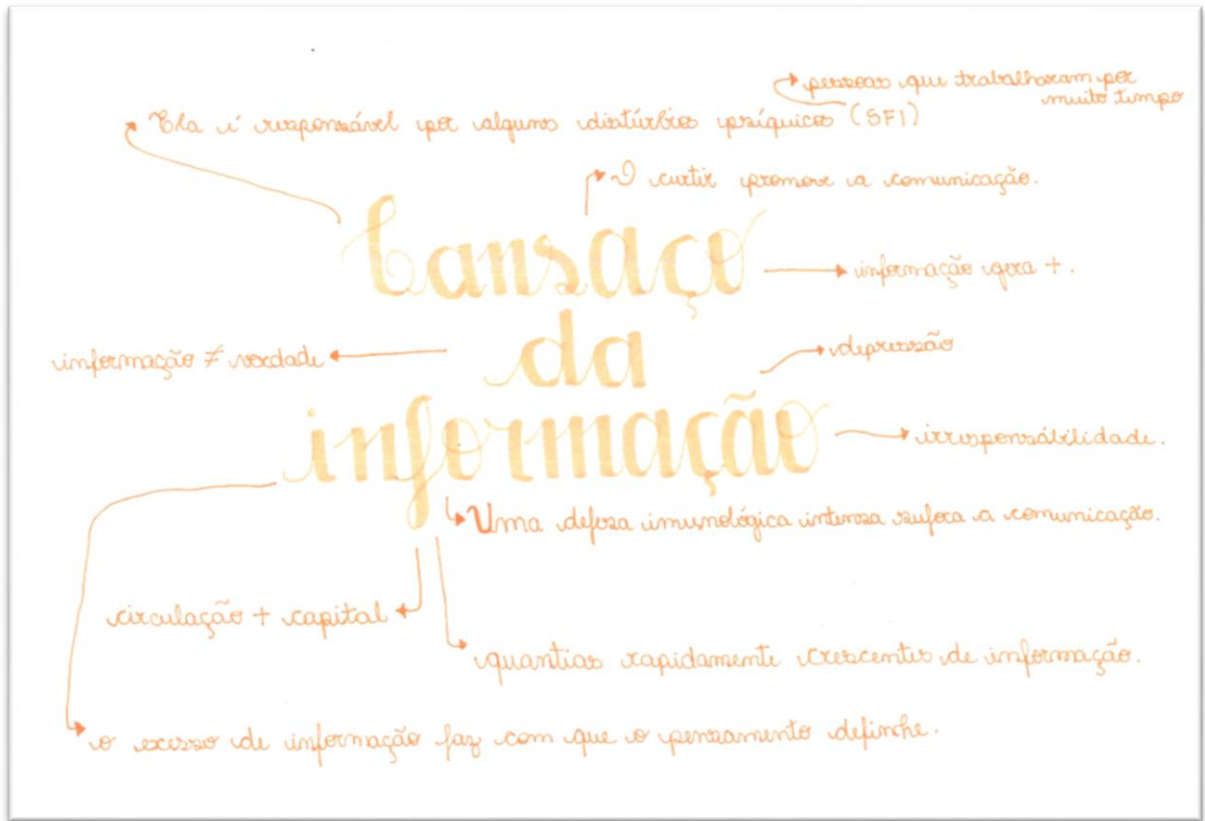 pessoas que trabalharam por
muito tempo
Ela é responsável por alguns distúrbios psíquicos (SFI)
O curtir promove a comunicação.
Cansaço
informação gera +.
da
informação ≠ verdade
depressão
informação
irresponsábilidade.
Uma defesa imunológica intensa sufoca a comunicação.
circulação + capital
quantias rapidamente crescentes de informação.
o excesso de informação faz com que o pensamento definhe.